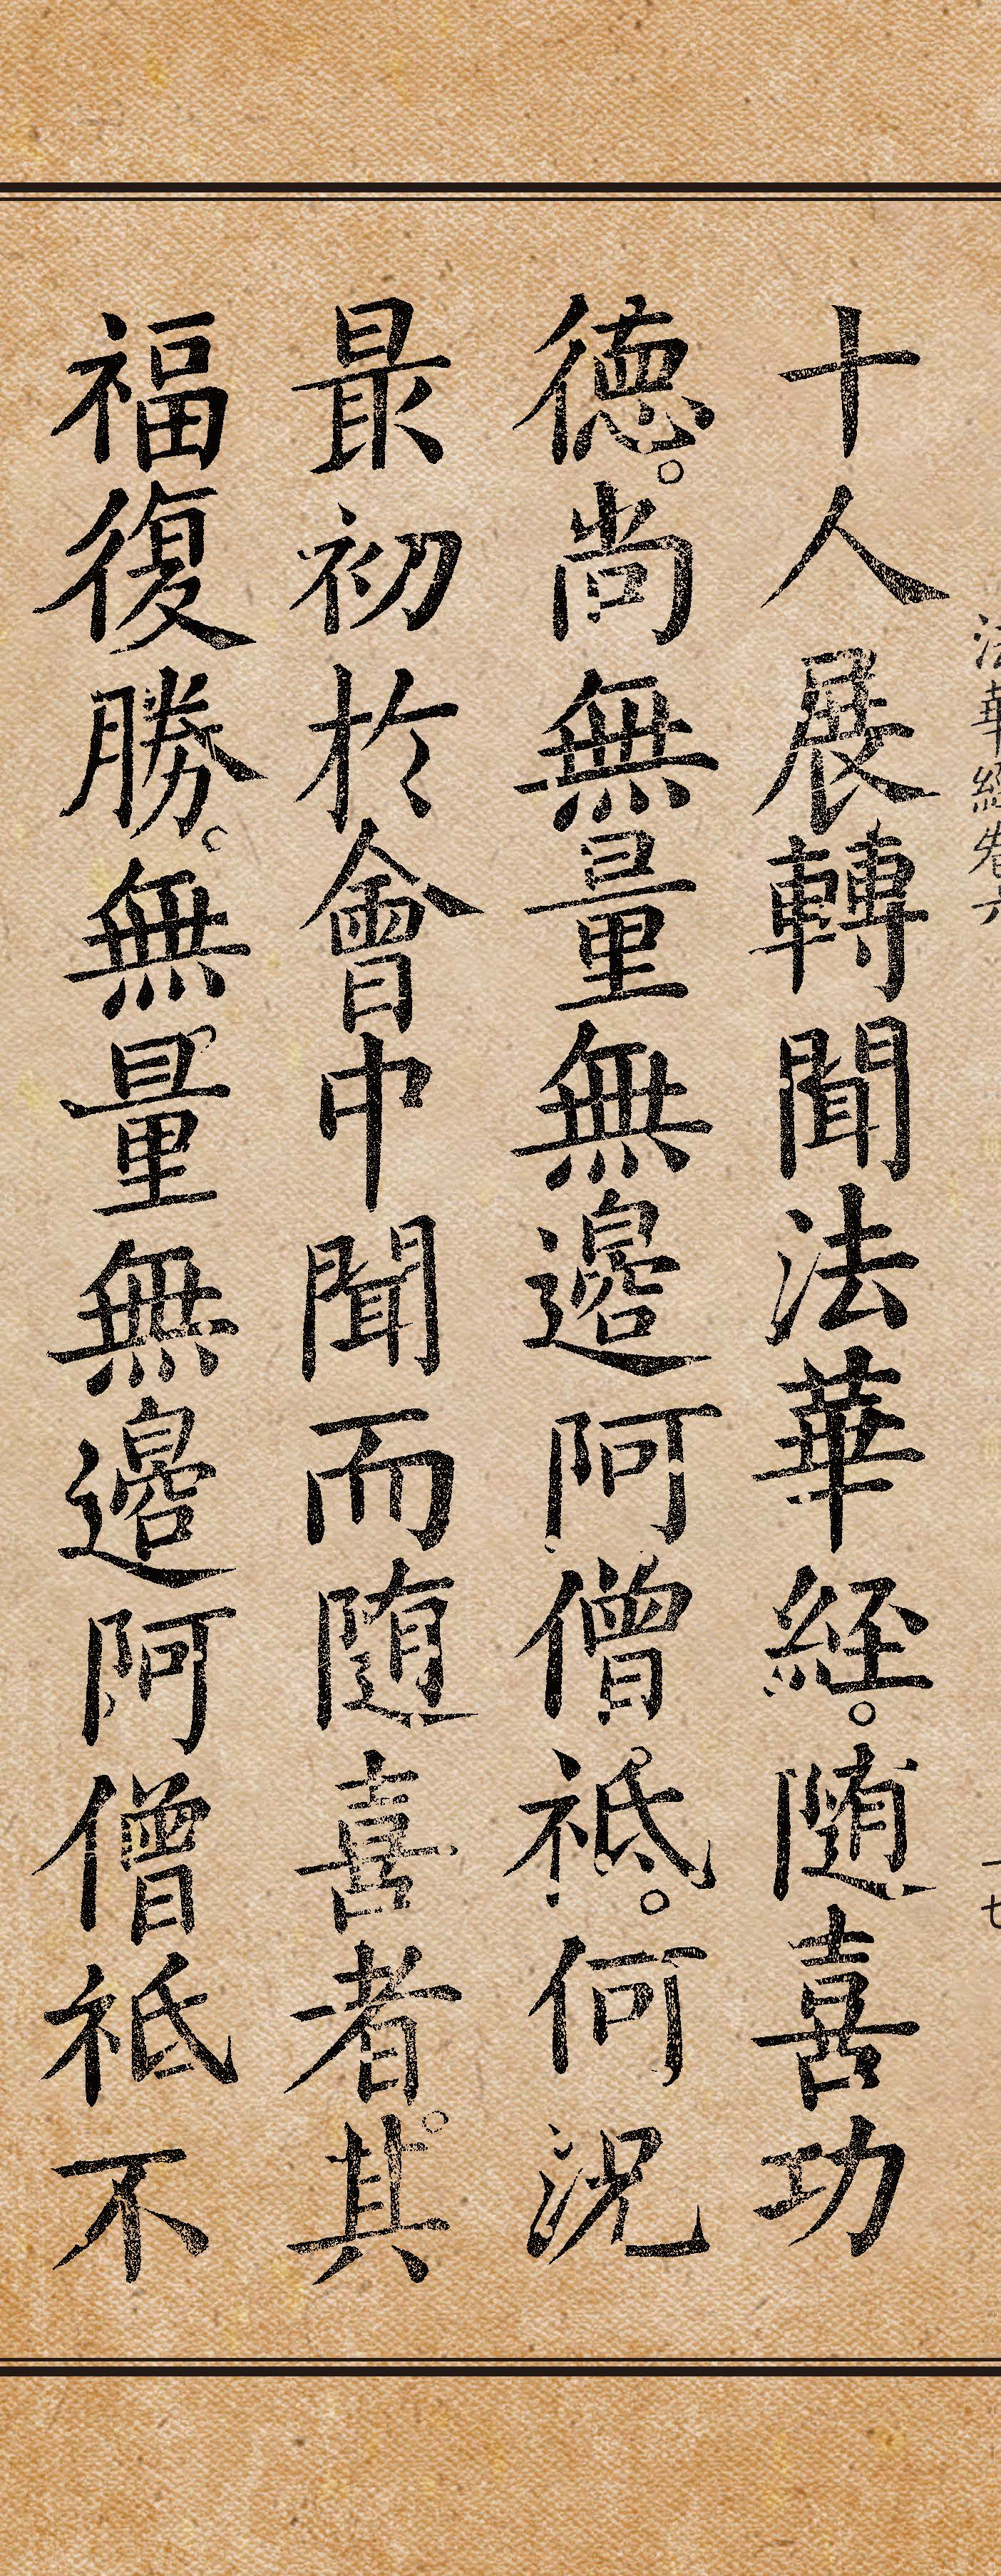 法華經卷六
十七
十人展轉聞法華経。随喜功
徳。尚無量無邊阿僧祇。何況
最初於會中聞而随喜者。其
福復勝。無量無邊阿僧祇不